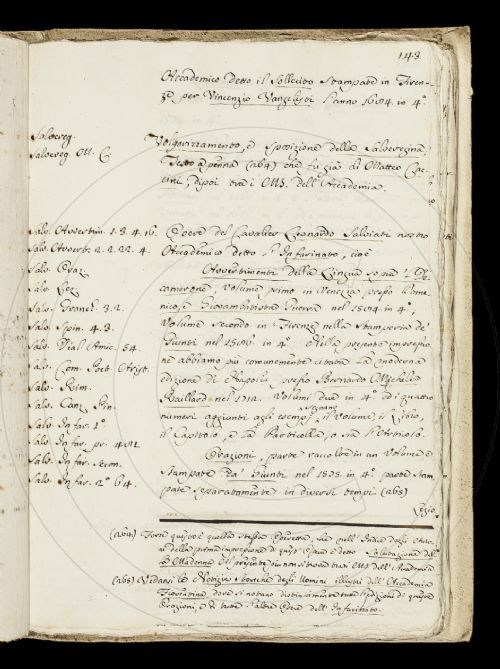 143
Accademico detto il Sollecito Stampate in Firen-
ze per Vincenzio Vangelisti l'anno 1684. in 4°
Salvereg.
Salvereg. M. C
Volgarizzamento, e sposizione della Salveregina,
Testo a penna (264) che fu già di Matteo Cac-
cini, dipoi era i MSS. dell'Accademia.
Salv. Avvertim. 1. 3. 4. 16.
Salv. Avvert. 2. 2. 22. 4.
Salv. Oraz.
Salv. Lez.
Salv. Granch. 3. 2.
Salv. Spin. 4. 3.
Salv. Dial. Amic. 54.
Salv. Com. Poet. Arist.
Salv. Rim.
Salv. Canz. Pin.
Salv. Infar. 1°
Salv. Infar. pr. 481.
Salv. Infar. secon.
Salv. Infar. 2° 64.
Opere del Cavalier Lionardo Salviati nostro
Accademico detto l'Infarinato, cioè
Avvertimenti della Lingua sopra 'l De-
camerone, Volume primo in Venezia presso Dome-
nico, e Giovambatista Guerra nel 1584. in 4°,
Volume secondo in Firenze nella Stamperia de'
Giunti nel 1586. in 4° Nella presente impressio-
ne abbiamo più comunemente citata la moderna
edizione di Napoli presso Bernardo Michele
Raillard nel 1712. Volumi due in 4° ed i quattro
numeri aggiunti agli esempj segnano il Volume, il Libro,
il Capitolo, e la Particella, o sia l'Articolo.
Orazioni, parte raccolte in un Volume e
stampate da' Giunti nel 1575. in 4°. parte stam-
pate separatamente in diversi tempi (265)
Lezio
(264) Forse questo è quello stesso che nell'Indice degli Auto-
ri della prima impressione di questa Opera è detto Salutazione del-
la Madonna Al presente più non si trova tra i MSS. dell'Accademia
(265) Vedansi le Notizie storiche degli Uomini illustri dell'Accademia
Fiorentina dove si notano distintamente tutte l'edizioni di queste
Orazioni, e di tutte l'altre Opere dell'Infarinato.